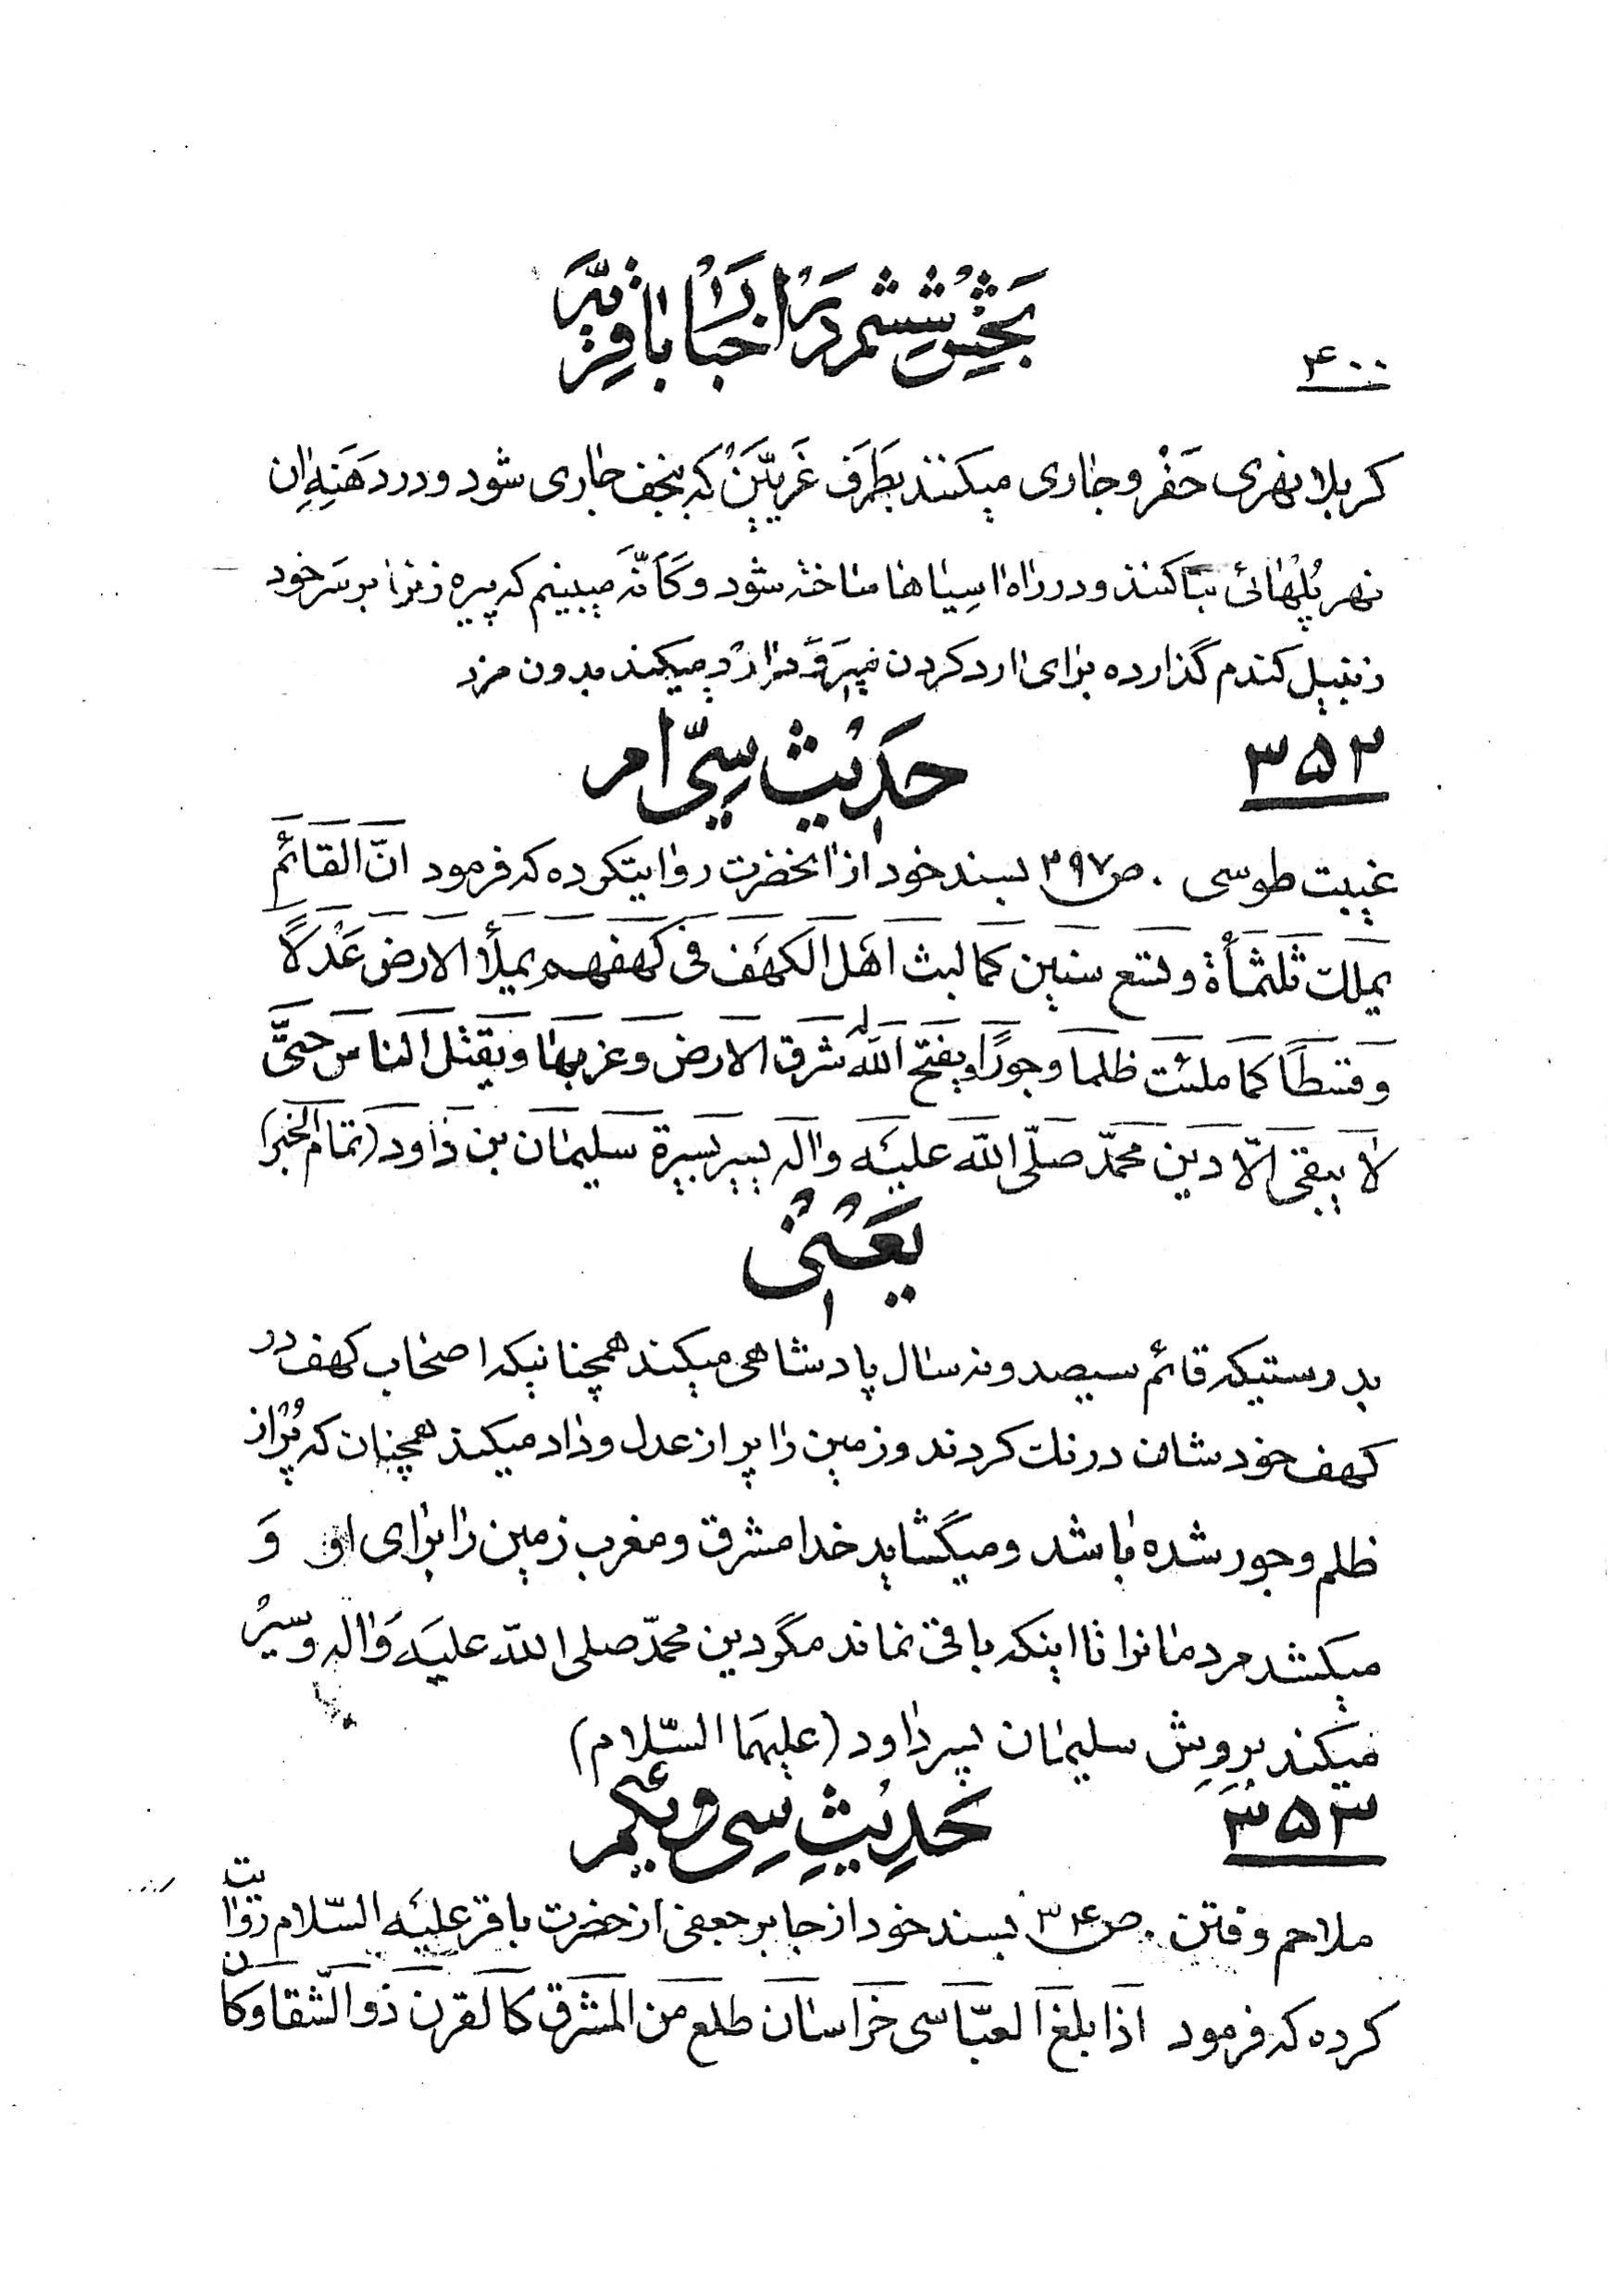 بخش ششم در اخبار باقریّه
۴۰۰
کربلا نهری حَفْر و جاری میکنند بطَرَف غَرِیَّیْن که بنجف جاری شود و در دَهَنهٔ ان
نهر پُلْهائی بنا کنند و در راه اسیاها ساخته شود و کَاَنَّه میبینم که پیره زنرا بر سر خود
زنبیل کندم گذارده برای ارد کردن میبرد و ارد میکند بدون مزد
۳۵۲
حدیث سیّ ام
غیبت طوسی . ص۳۹۷ بسند خود از انحضرت روایتکرده که فرمود انّ القائم
یملك ثلثمأة و تسع سنین کما لبث اهل الکهف فی کهفهم یملأ الارض عَدْلًا
و قسطًا کما ملئت ظلما و جورًا و یفتح الله له شرق الارض و غربها و یقتل الناس حتّی
لا یبقی الّا دین محمّد صلّی الله علیه و اله یسیر بسیرة سلیمان بن داود (تمام الخبر)
یَعْنی
بدرستیکه قائم سیصد و نه سال پادشاهی میکند همچنانیکه اصحاب کهف در
کهف خودشان درنك کردند و زمین را پر از عدل و داد میکند همچنان که پُر از
ظلم و جور شده باشد و میگشاید خدا مشرق و مغرب زمین را برای او وَ
میکشد مردمانرا تا اینکه باقی نماند مگر دین محمّد صلی الله علیه و اله و سیر
میکند بروش سلیمان پسر داود (علیهما السّلام)
۳۵۳
حدیث سی و یکم
ملاحم و فتن . ص۳۴ بسند خود از جابر جعفی از حضرت باقر علیه السّلام روایت
کرده که فرمود اذا بلغ العبّاسی خراسان طلع من المشرق کالقرن ذو الشّفا و کان